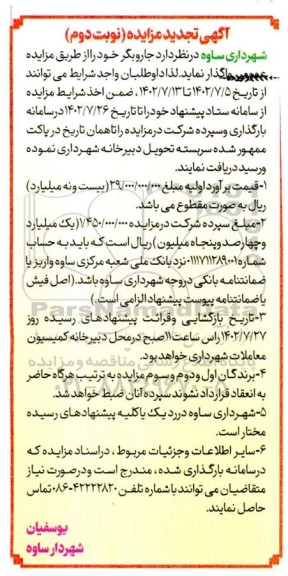 آگهی تجدید مزایده (نوبت دوم)
شهرداری ساوه در نظر دارد جاروبگر خود را از طریق مزایده
واگذار نماید. لذا داوطلبان واجد شرایط می توانند
از تاریخ ۱۴۰۲/۷/۵ تا ۱۴۰۲/۷/۱۳، ضمن اخذ شرایط مزایده
از سامانه ستاد پیشنهاد خود را تا تاریخ ۱۴۰۲/۷/۲۶ در سامانه
بارگذاری و سپرده شرکت در مزایده را تا همان تاریخ در پاکت
ممهور شده سربسته تحویل دبیرخانه شهرداری نموده
و رسید دریافت نمایند.
۱-قیمت برآورد اولیه مبلغ ۲۹/۰۰۰/۰۰۰/۰۰۰ (بیست و نه میلیارد)
ریال به صورت مقطوع می باشد.
۲-مبلغ سپرده شرکت در مزایده ۱/۴۵۰/۰۰۰/۰۰۰ (یک میلیارد
و چهارصد و پنجاه میلیون) ریال است که باید به حساب
شماره ۰۱۱۱۷۱۱۲۸۹۰۰۱ نزد بانک ملی شعبه مرکزی ساوه واریز یا
ضمانتنامه بانکی در وجه شهرداری ساوه باشد. (اصل فیش
یا ضمانتنامه پیوست پیشنهاد الزامی است.)
۳-تاریخ بازگشایی و قرائت پیشنهادهای رسیده روز
۱۴۰۲/۷/۲۷ راس ساعت ۱۱ صبح در محل دبیرخانه کمیسیون
معاملات شهرداری خواهد بود.
۴-برندگان اول و دوم و سوم مزایده به ترتیب هرگاه حاضر
به انعقاد قرارداد نشوند سپرده آنان ضبط خواهد شد.
۵-شهرداری ساوه در رد یک یا کلیه پیشنهادهای رسیده
مختار است.
۶-سایر اطلاعات و جزئیات مربوط، در اسناد مزایده که
در سامانه بارگذاری شده، مندرج است و در صورت نیاز
متقاضیان می توانند با شماره تلفن ۴۲۲۲۲۸۲۰-۰۸۶ تماس
حاصل نمایند.
یوسفیان
شهردار ساوه